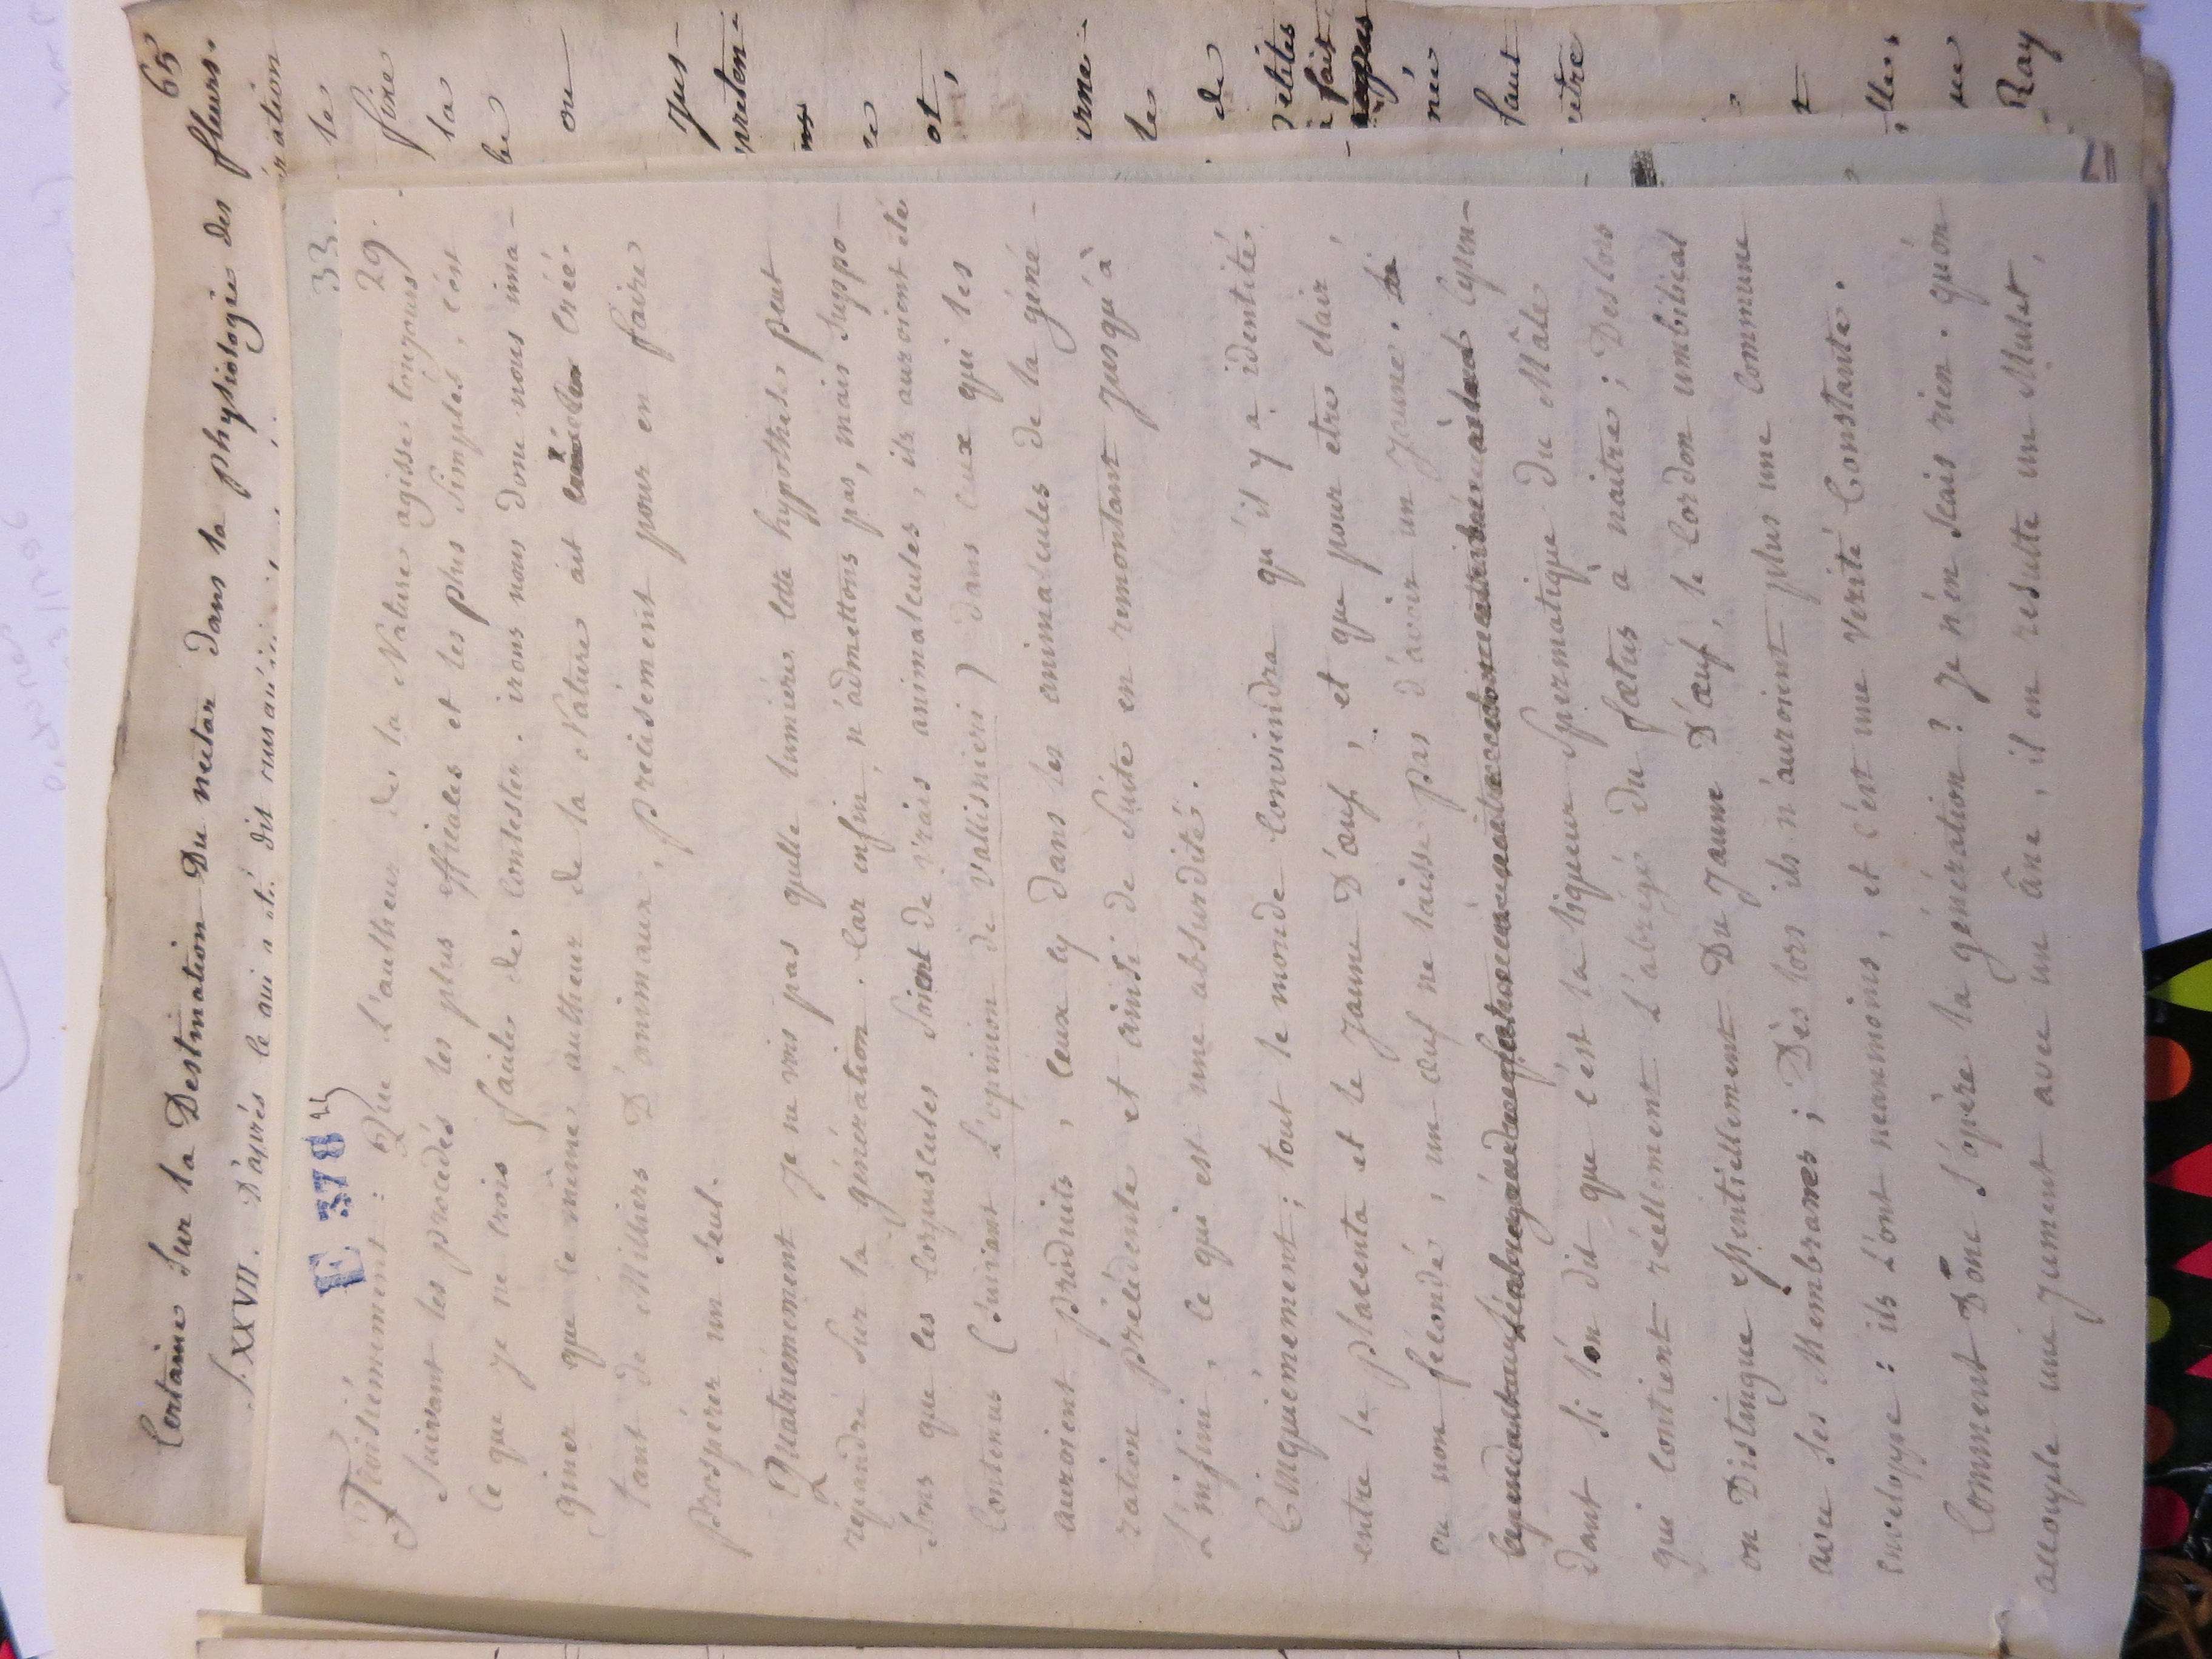 65
Certaine Sur la Destination Du nectar dans la physiologie des fleurs.
§. XXVII. D'après ce qui a été dit
ration
le
fixe
la
be
ou
Jus-
preten-
ce
ot,
erne-
le
de
petites
à fait
née
faut
être
t
lles,
ne
Ray
E 378
33.
29.
Troisiémement : Que L'autheur de la Nature agisse toujours
Suivant les procédés les plus efficales et les plus Simples, c'est
ce que je ne crois facile de Contester. irons nous donc nous ima-
giner que le même autheur de la Nature ait Créé.
tant de Milliers D'animaux, précisément pour en faire
prospérer un Seul.
Quatriemement je ne vois pas quelle lumiere cette hypothese peut
répandre Sur la génération. Car enfin, n'admettons pas, mais Suppo-
sons que les Corpuscules Soient de vrais animalcules, ils auroient été
Contenus (Suivant L'opinion de Vallisnieri) dans ceux qui les
auroient produits, ceux cy dans les animalcules de la géné-
ration précédente et ainsi de Suite en remontant jusqu'à
L'infini, ce qui est une absurdité.
Cinquiémement; tout le monde Conviendra qu'il y a identité
entre le placenta et le Jaune D'œuf, et que pour etre clair,
ou non fécondé, un œuf ne laisse pas d'avoir un Jaune. Cepen-
dant Si l'on dit que c'est la liqueur Spermatique du Mâle
qui Contient réellement L'abrégé du fœtus à naitre; Deslors
on Distingue essentiellement Du Jaune D'œuf, le Cordon umbilical
avec Ses Membranes; Dès lors ils n'auroient plus une Commune
enveloppe: ils L'ont neanmoins, et c'est une Verité Constante.
Comment Donc S'opère la génération? Je n'en Scais rien. qu'on
accouple une Jument avec un âne, il en resulte un Mulet,